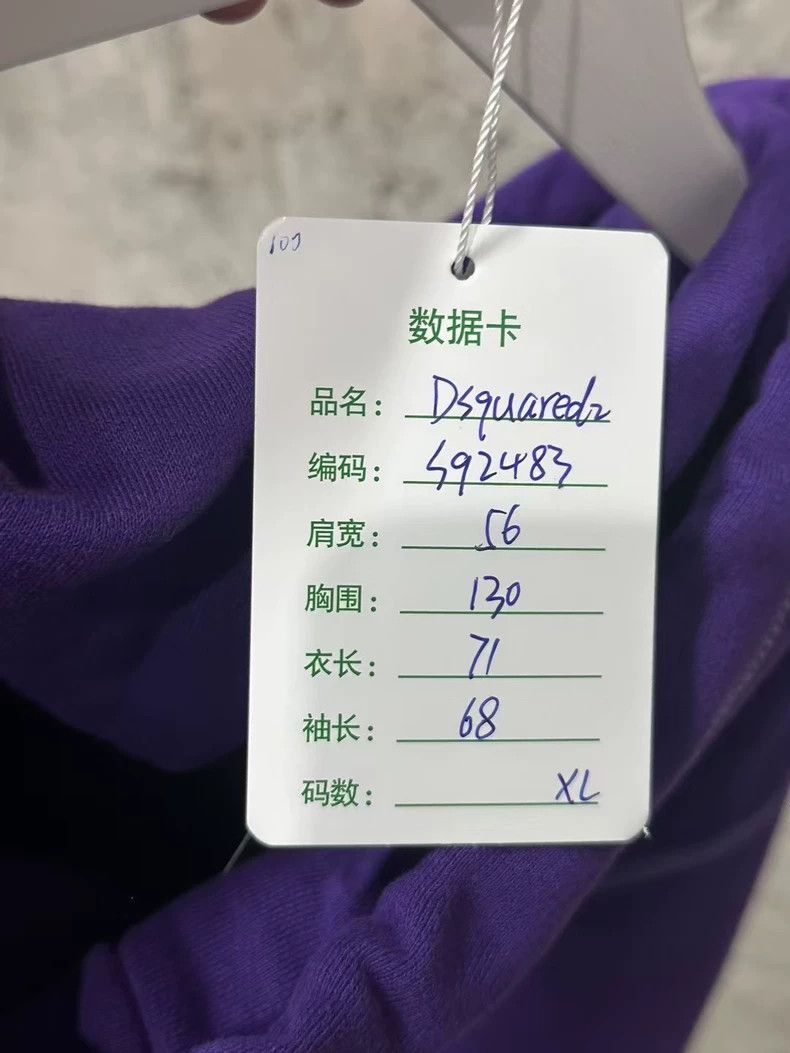 数据卡
品名: Dsquared2
编码: S92483
肩宽: 56
胸围: 130
衣长: 71
袖长: 68
码数: XL